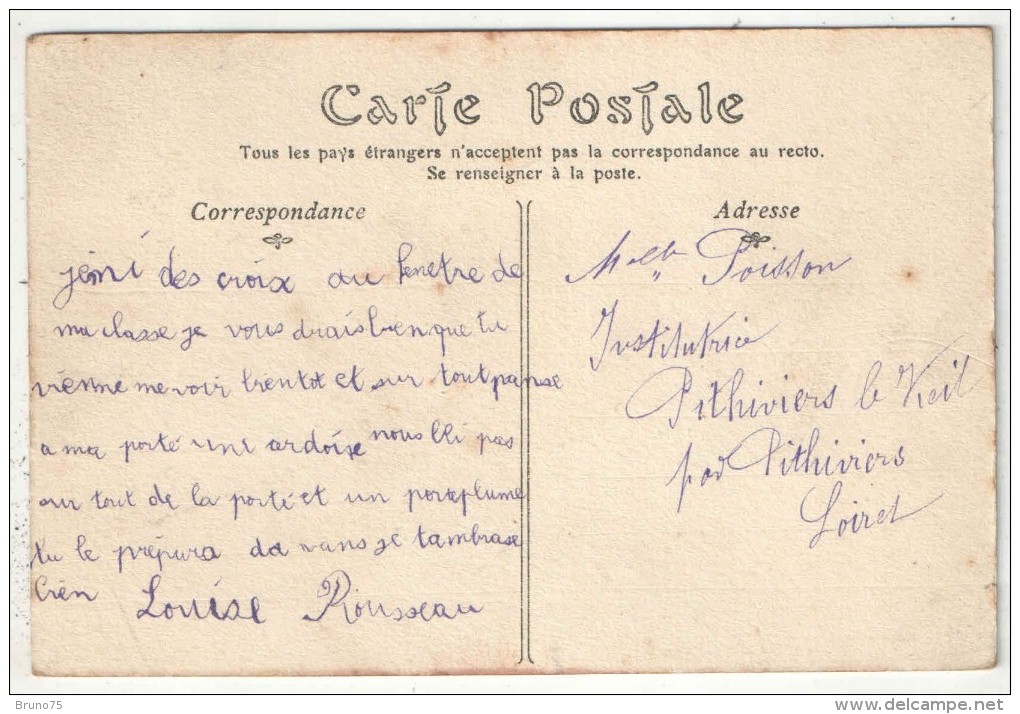 Carte Postale
Tous les pays étrangers n'acceptent pas la correspondance au recto.
Se renseigner à la poste.
Correspondance
jemi des croix au fenetre de
ma classe je vous draisbien que tu
vienne me voir bientot et sur tout panse
a ma porté uni ardoise nousbli pas
sur tout de la porté et un porteplume
tu le prépura da vans je tambrase
bien Louise Rousseau
Adresse
Melle Poisson
Institutrice
Pithiviers le Veil
par Pithiviers
Loiret
Bruno75
delcampe.net